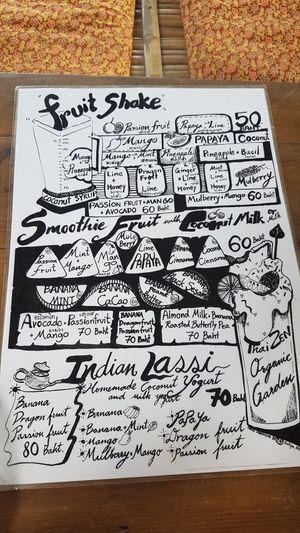 Fruit Shake
Passion fruit
Papaya + Lime
50 BAHT
Mango
PAPAYA
Coconut
Mango + Mint
Pineapple
Pineapple + Basil
Mango + Pineapple
Lime + Honey
Dragon Fruit + Lime
Ginger + Lime + Honey
Mint + Lime + Honey
Mulberry
COCONUT SYRUP
PASSION FRUIT + MANGO + AVOCADO 60 BAHT
Mulberry + Mango 60 BAHT
Smoothie Fruit with Coconut Milk
60 BAHT
Passion fruit
Mint Mango
Mulberry Mango
Lime PAPAYA
BANANA MINT
BANANA CaCao
Avocado + Passionfruit + Mango
70 BAHT
BANANA Dragonfruit Passionfruit
70 BAHT
Almond Milk + Banana Roasted Butterfly Pea
70 BAHT
Thai ZEN Organic Garden
Indian Lassi
Homemade Coconut Yogurt
and milk yogurt
70 Baht
Banana
Dragon fruit
Passion fruit
80 Baht.
Banana
Banana + Mint
Mango
Mulberry + Mango
PaPaYa
Dragon fruit
Passion fruit